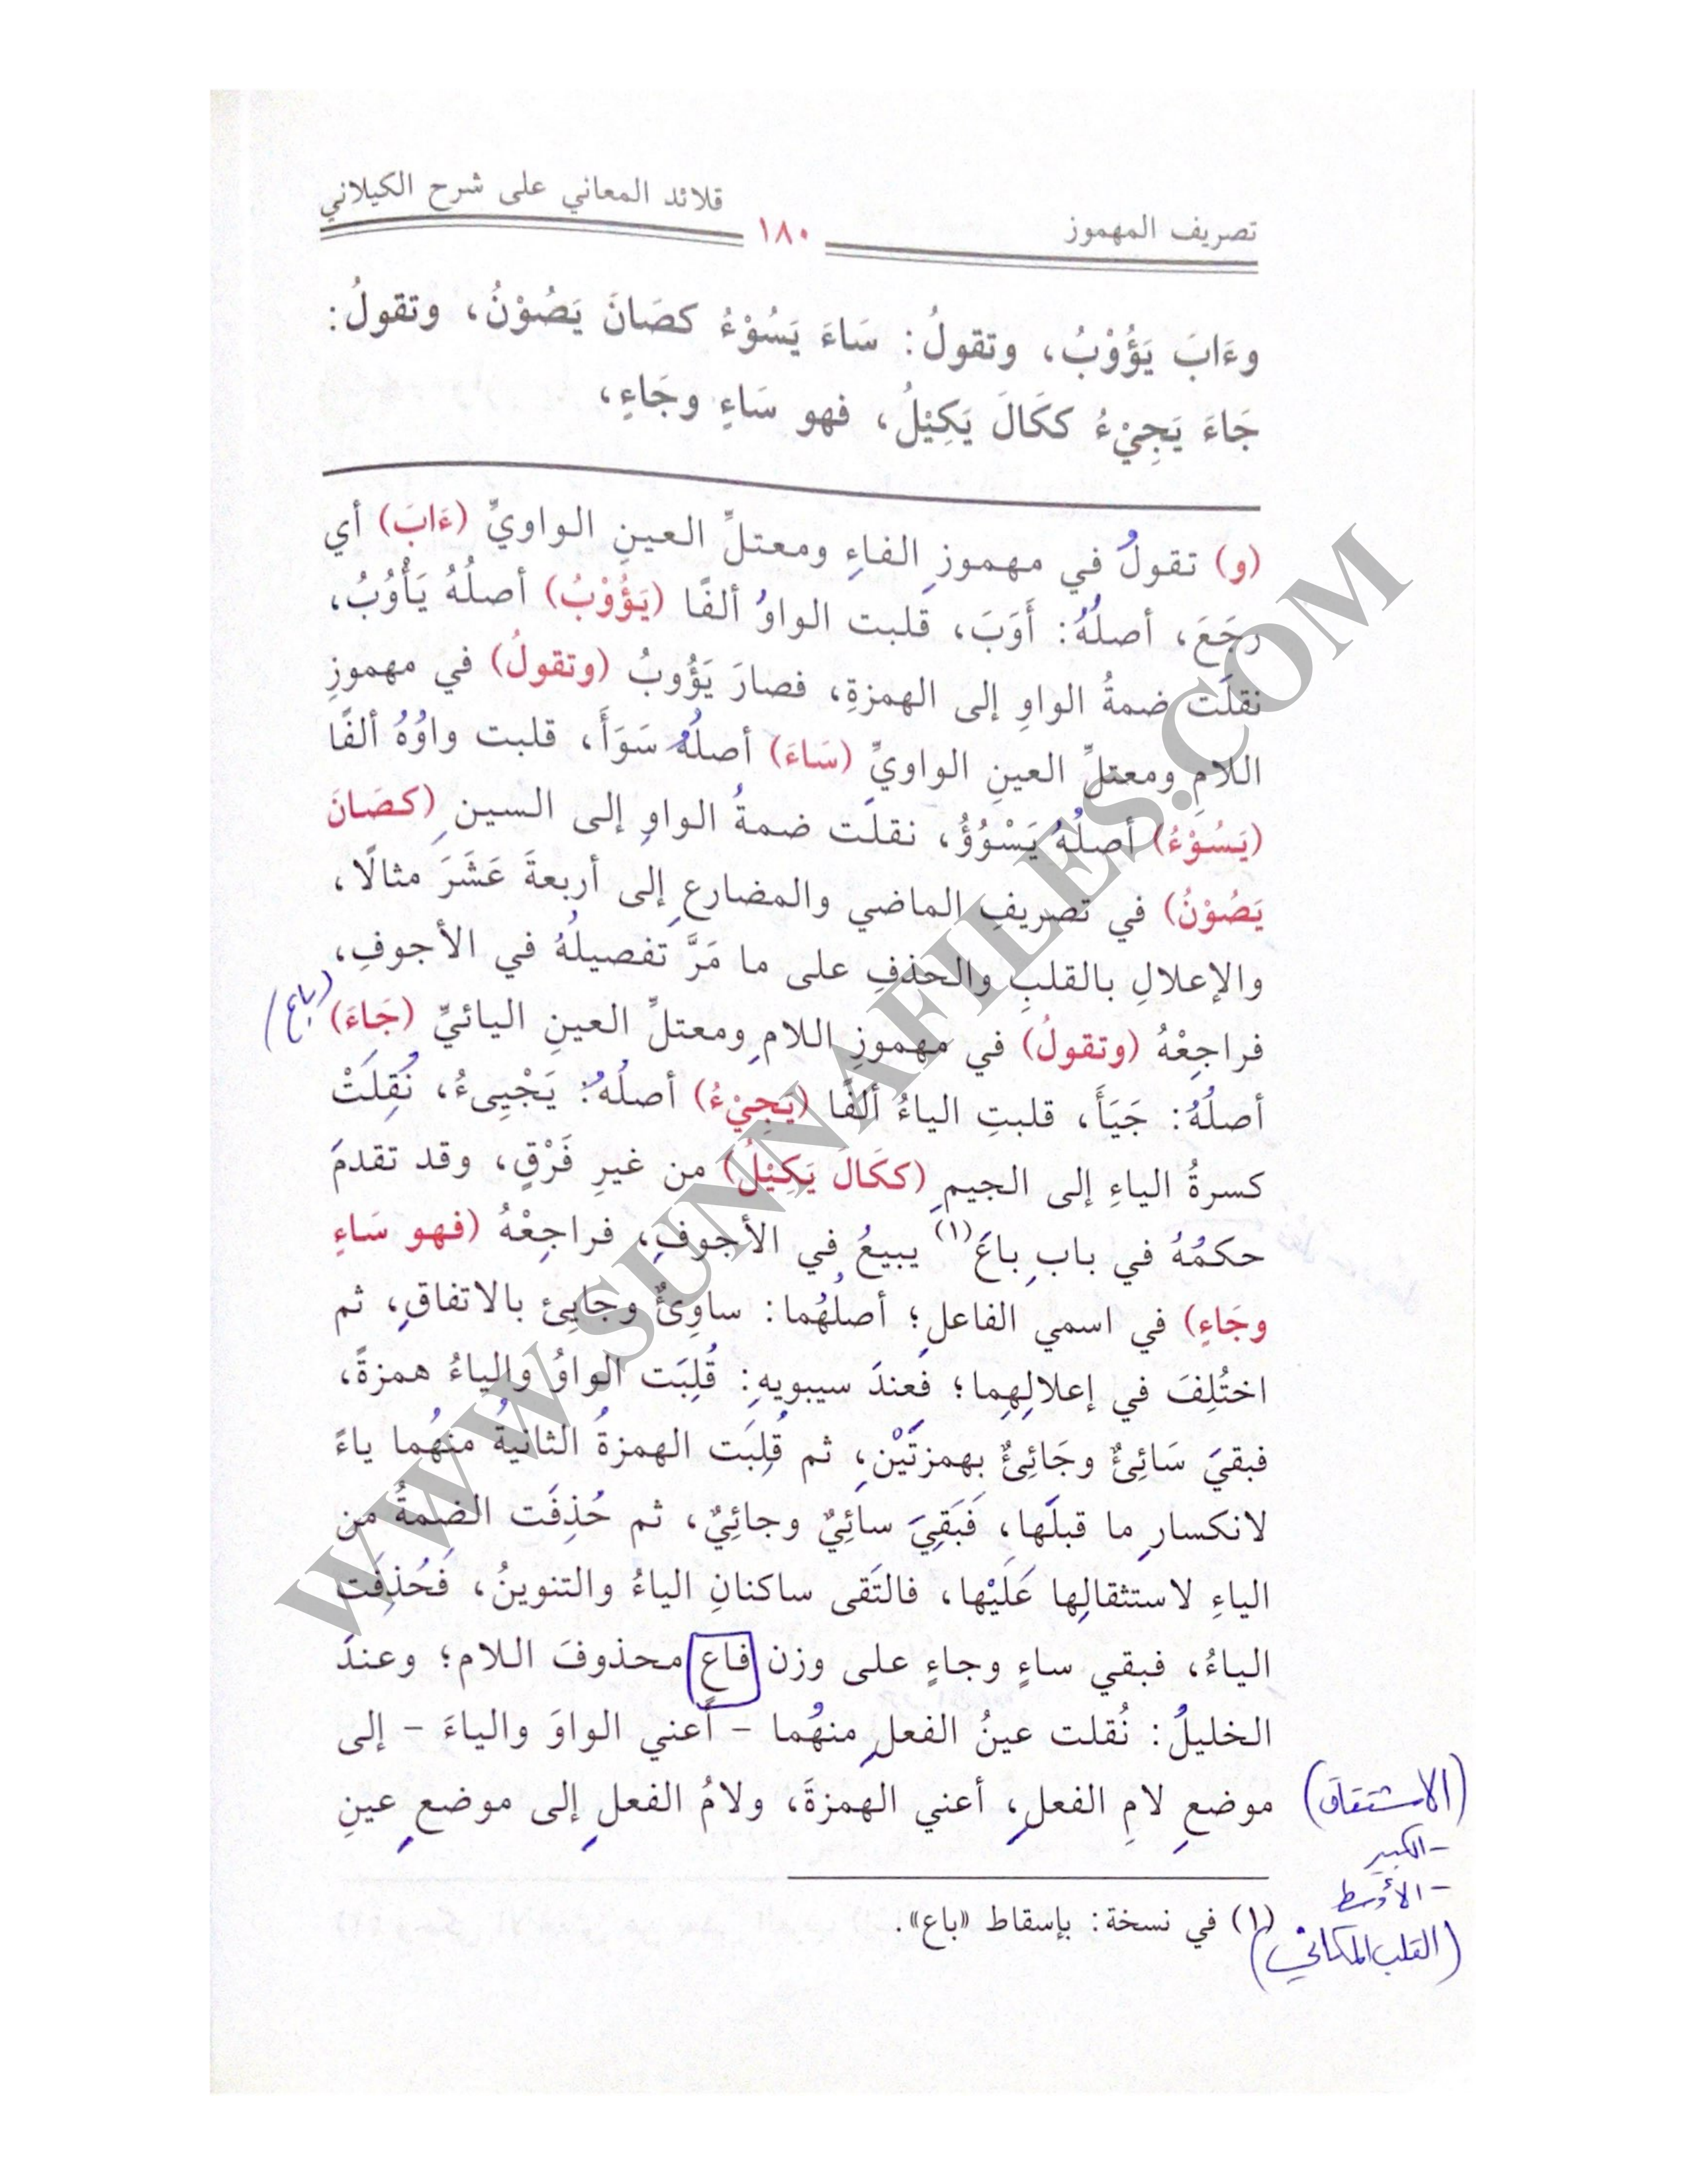 تصريف المهموز
١٨٠
قلائد المعاني على شرح الكيلاني
وءَابَ يَؤُوْبُ، وتقولُ: سَاءَ يَسُوْءُ كصَانَ يَصُوْنُ، وتقولُ:
جَاءَ يَجِيْءُ ككَالَ يَكِيْلُ، فهو سَاءٍ وجَاءٍ،
(و) تقولُ في مهموزِ الفاءِ ومعتلِّ العينِ الواويِّ (ءَابَ) أي
رجَعَ، أصلُهُ: أَوَبَ، قلبت الواوُ ألفًا (يَؤُوْبُ) أصلُهُ يَأْوُبُ،
نقلَت ضمةُ الواوِ إلى الهمزةِ، فصارَ يَؤُوبُ (وتقولُ) في مهموزِ
اللامِ ومعتلِّ العينِ الواويِّ (سَاءَ) أصلُهُ سَوَأَ، قلبت واوُهُ ألفًا
(يَسُوْءُ) أصلُهُ يَسْوُؤُ، نقلَت ضمةُ الواوِ إلى السينِ (كصَانَ
يَصُوْنُ) في تصريفِ الماضي والمضارعِ إلى أربعةَ عَشَرَ مثالًا،
والإعلالِ بالقلبِ والحذفِ على ما مَرَّ تفصيلُهُ في الأجوفِ،
فراجِعْهُ (وتقولُ) في مهموزِ اللامِ ومعتلِّ العينِ اليائيِّ (جَاءَ)
(باع)
أصلُهُ: جَيَأَ، قلبتِ الياءُ ألفًا (يَجِيْءُ) أصلُهُ: يَجْيِىءُ، نُقِلَتْ
كسرةُ الياءِ إلى الجيمِ (ككَال يَكِيْلُ) من غيرِ فَرْقٍ، وقد تقدمَ
حكمُهُ في بابِ باعَ(١) يبيعُ في الأجوفِ، فراجِعْهُ (فهو سَاءٍ
وجَاءٍ) في اسمي الفاعلِ؛ أصلُهُما: ساوِئٌ وجايِئ بالاتفاقِ، ثم
اختُلِفَ في إعلالِهِما؛ فعندَ سيبويهِ: قُلِبَت الواوُ والياءُ همزةً،
فبقيَ سَائِئٌ وجَائِئٌ بهمزتَيْنِ، ثم قُلِبَت الهمزةُ الثانيةُ منهُما ياءً
لانكسارِ ما قبلَها، فَبَقِيَ سائِيٌ وجائِيٌ، ثم حُذِفَت الضمةُ من
الياءِ لاستثقالِها عَلَيْها، فالتَقى ساكنانِ الياءُ والتنوينُ، فَحُذِفَت
الياءُ، فبقي ساءٍ وجاءٍ على وزن فاعٍ محذوفَ اللام؛ وعندَ
الخليلُ: نُقلت عينُ الفعلِ منهُما – أعني الواوَ والياءَ – إلى
موضعِ لامِ الفعلِ، أعني الهمزةَ، ولامُ الفعلِ إلى موضعِ عينِ
(الاشتقاق)
- الكبير
- الأوسط
(القلب المكاني)
(١) في نسخة: بإسقاط «باع».
WWW.SUNNAFILES.COM